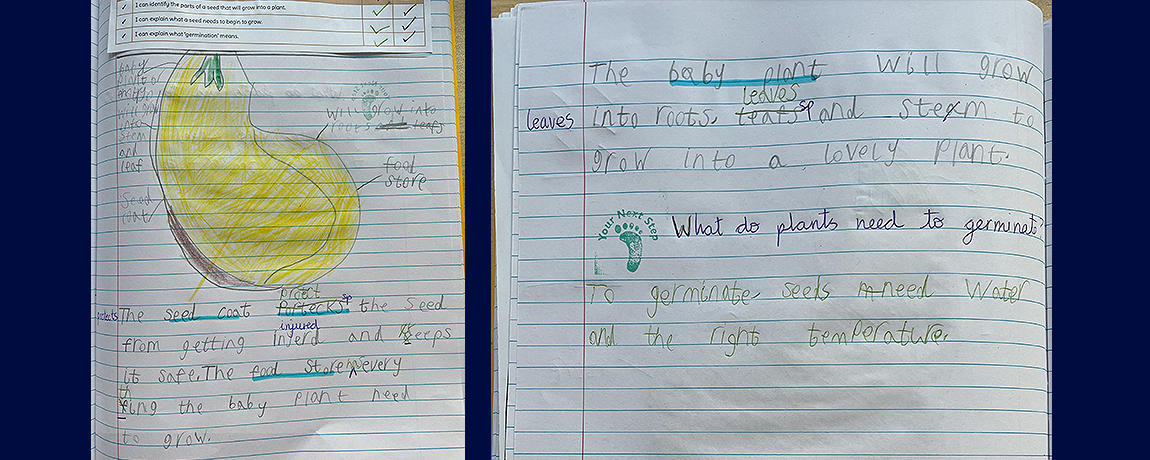 I can identify the parts of a seed that will grow into a plant.
I can explain what a seed needs to begin to grow.
I can explain what 'germination' means.
baby
plant or
will grow
into
stem
and
leaf
Seed
coat
will grow into
roots and leafs
food
store
The seed coat the seed
protect
sp
injured
from getting injerd and keeps
it safe. The food store every
th
ing the baby plant need
to grow.
The baby plant will grow
leaves
leaves into roots, leafs sp and stem to
grow into a lovely plant.
Your Next Step
What do plants need to germinate?
To germinate, seeds need water
and the right temperature.